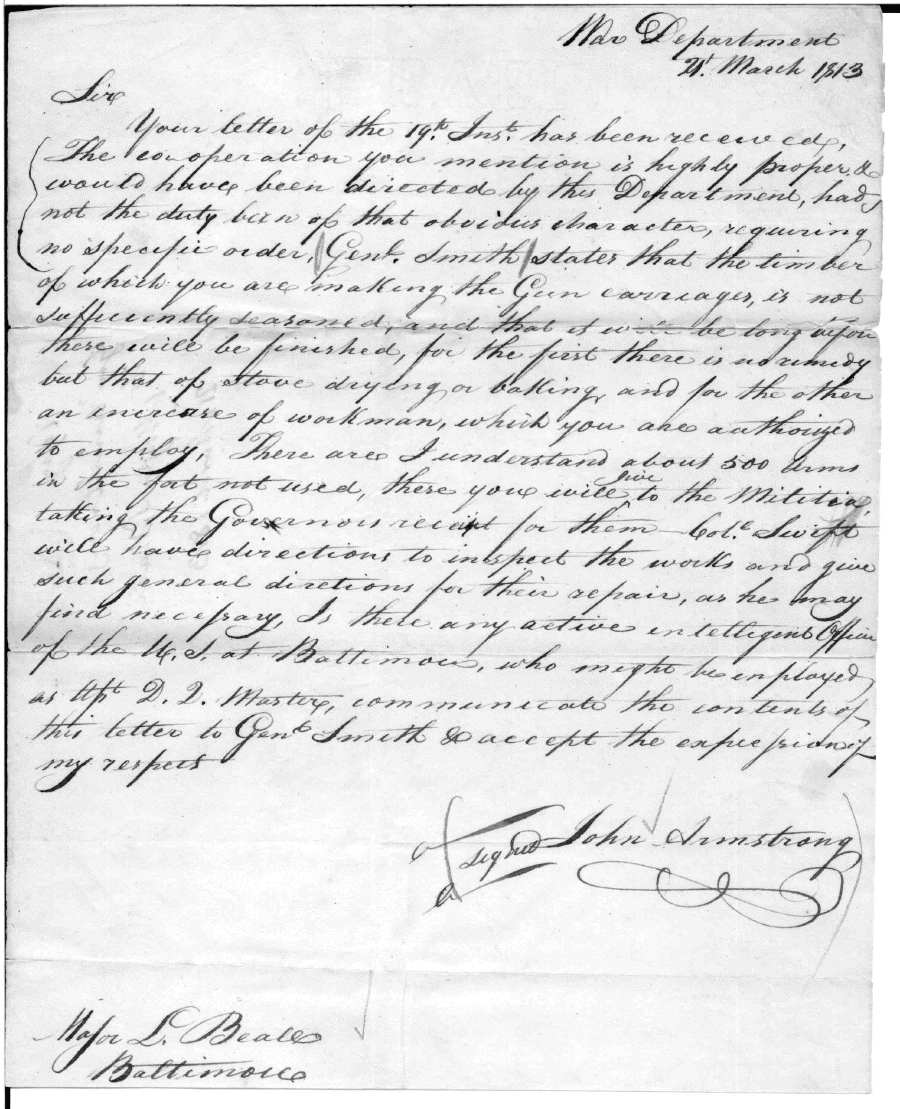 War Department
21t. March 1813
Sir
Your letter of the 19th. Inst. has been received,
The cooperation you mention is highly proper, &
would have been directed by this Department, had
not the duty been of that obvious character, requiring
no specific order, Genl. Smith states that the timber
of which you are making the Gun carriages, is not
sufficiently seasoned, and that it will be long before
these will be finished, for the first there is no remedy
but that of stove drying or baking, and for the other
an increase of workman, which you are authorized
to employ, There are I understand about 500 arms
in the fort not used, these you will give to the Militia,
taking the Governors receipt for them Col. Swift
will have directions to inspect the works and give
such general diretions for their repair, as he may
find necessary, Is there any active intelligent Officer
of the U. S. at Baltimore, who might be employed
as Apt D. Q. Master, communicate the contents of
this letter to Genl Smith & accept the expression of
my respects
signed John Armstrong
Major L. Beall
Baltimore